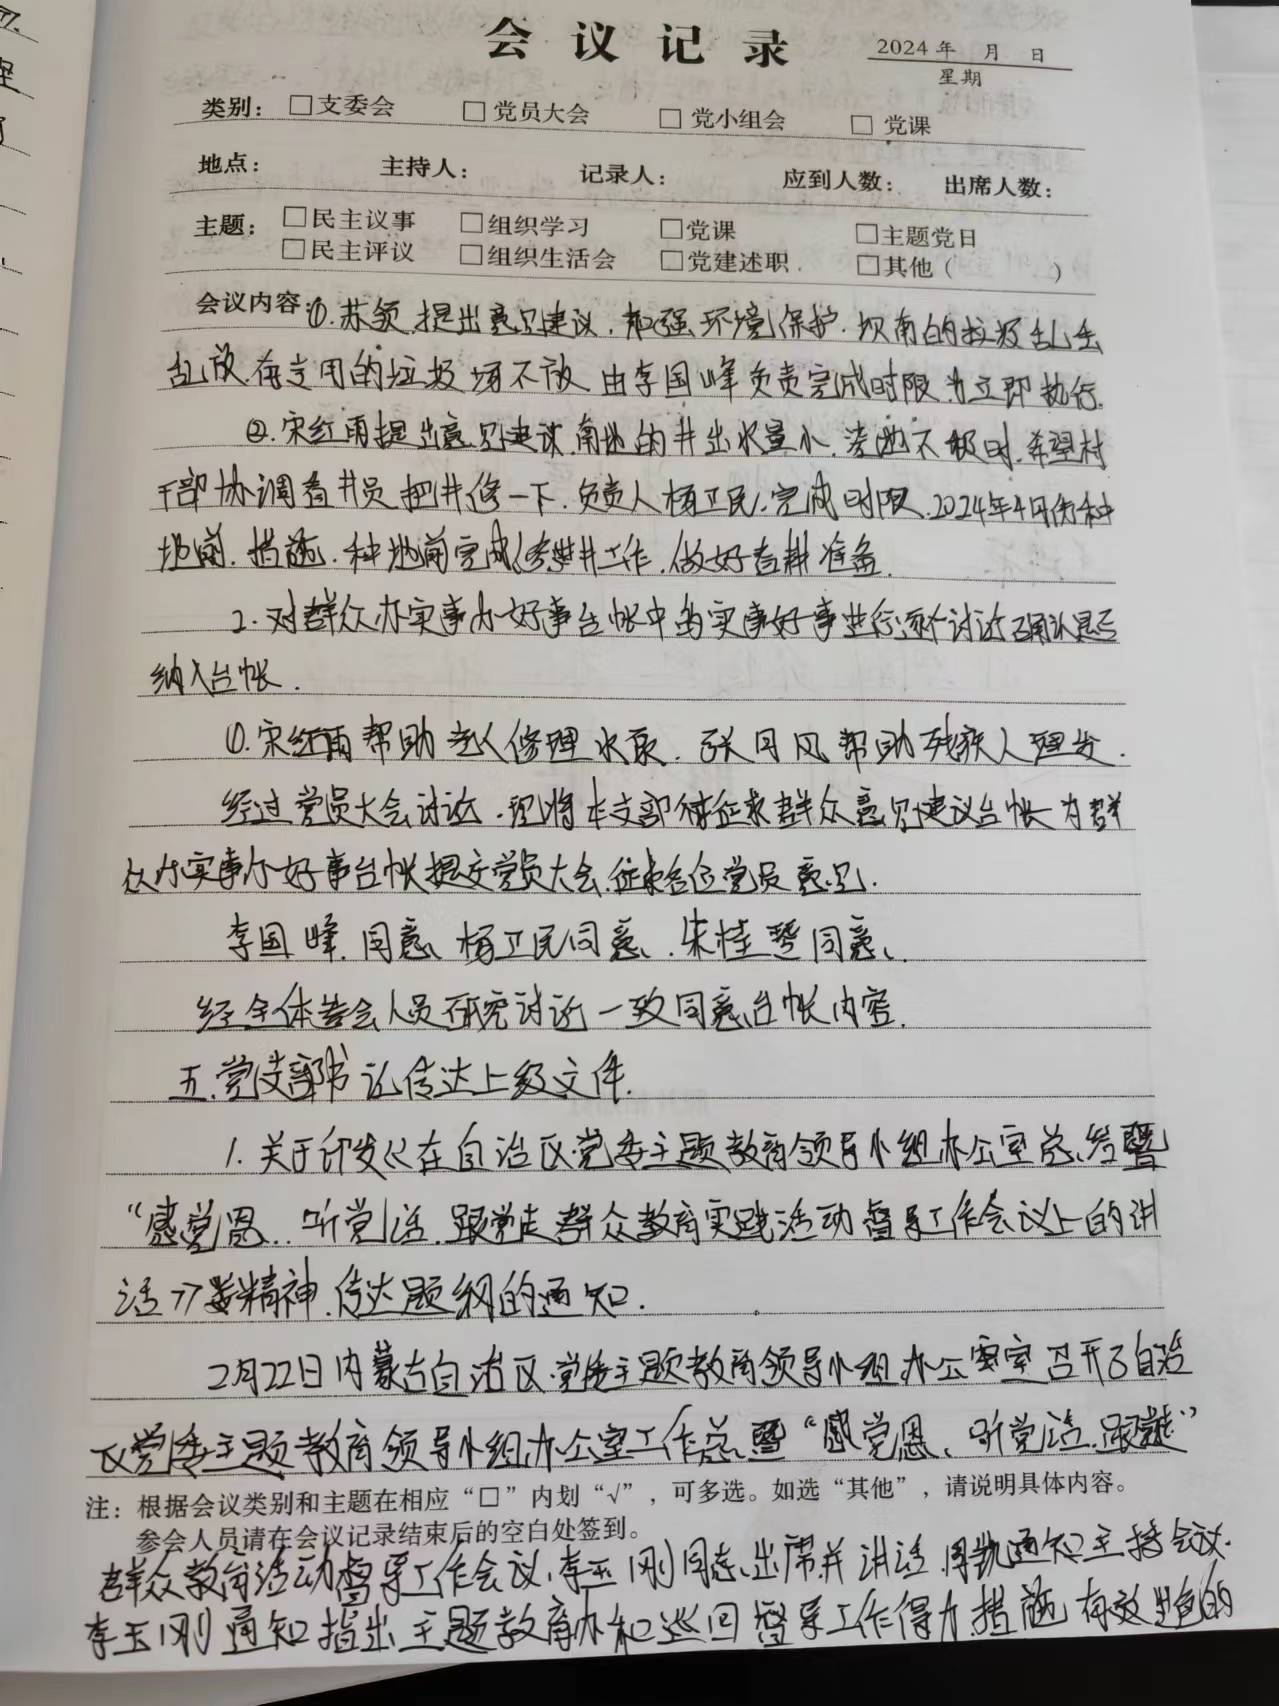 会议记录
2024年 月 日
星期
类别: □支委会 □党员大会 □党小组会 □党课
地点: 主持人: 记录人: 应到人数: 出席人数:
主题: □民主议事 □组织学习 □党课 □主题党日
□民主评议 □组织生活会 □党建述职 □其他( )
会议内容:①.苏领.提出意见建议.加强环境保护.坝南的垃圾乱丢
乱放.有专用的垃圾场不放.由李国峰负责完成时限为立即执行.
②.宋红雨提出意见建议.南地的井出水量小.浇地不极时.希望村
干部协调看井员把井修一下.负责人杨卫民.完成时限.2024年4月份种
地前.措施.种地前完成修井工作.做好春耕准备.
2.对群众办实事办好事台帐中的实事好事进行逐个讨论确认是否
纳入台帐.
①.宋红雨帮助老人修理水泵.张月风帮助残疾人理发.
经过党员大会讨论.现将本支部征求群众意见建议台帐为群
众办实事办好事台帐提交党员大会.征求各位党员意见.
李国峰.同意、杨卫民同意、朱桂琴同意、
经全体参会人员研究讨论一致同意台帐内容.
五.党支部书记传达上级文件.
1.关于印发《在自治区党委主题教育领导小组办公室总结暨
“感党恩、听党话.跟党走群众教育实践活动督导工作会议上的讲
话》精神.传达题纲的通知.
2月22日内蒙古自治区党委主题教育领导小组办公室召开了自治
区党委主题教育领导小组办公室工作总暨“感党恩、听党话.跟党走”
注:根据会议类别和主题在相应“□”内划“√”,可多选。如选“其他”,请说明具体内容。
参会人员请在会议记录结束后的空白处签到。
群众教育活动督导工作会议.李玉刚同志出席并讲话.周凯通知主持会议.
李玉刚通知指出主题教育办和巡回督导工作得力.措施有效.出色的